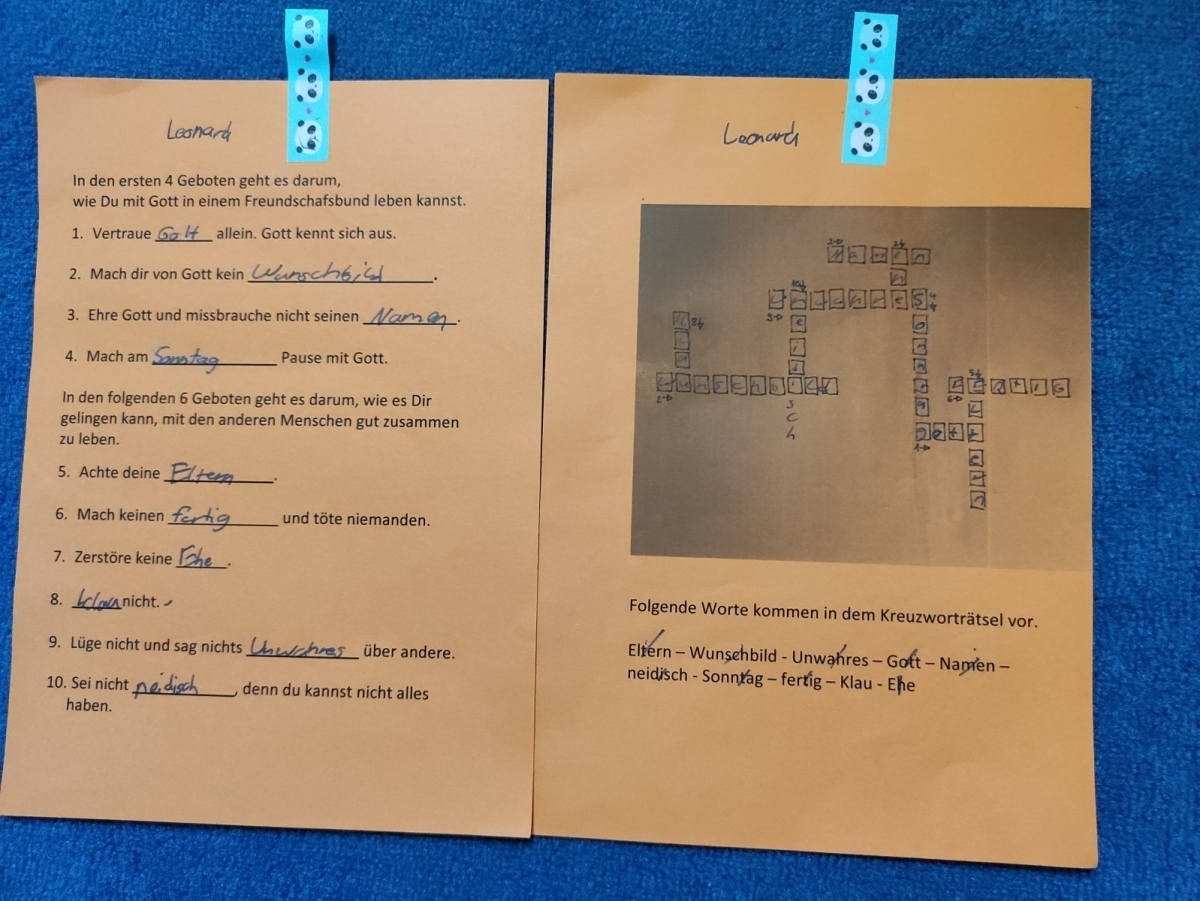 Leonard
In den ersten 4 Geboten geht es darum,
wie Du mit Gott in einem Freundschafsbund leben kannst.
1. Vertraue Gott allein. Gott kennt sich aus.
2. Mach dir von Gott kein Wunschbild.
3. Ehre Gott und missbrauche nicht seinen Namen.
4. Mach am Sonntag Pause mit Gott.
In den folgenden 6 Geboten geht es darum, wie es Dir
gelingen kann, mit den anderen Menschen gut zusammen
zu leben.
5. Achte deine Eltern.
6. Mach keinen fertig und töte niemanden.
7. Zerstöre keine Ehe.
8. klau nicht.
9. Lüge nicht und sag nichts Unwahres über andere.
10. Sei nicht neidisch, denn du kannst nicht alles
haben.
Leonard
Namen
Unwahres
Wunschbild
fertig
Gott
Folgende Worte kommen in dem Kreuzworträtsel vor.
Eltern – Wunschbild - Unwahres – Gott – Namen –
neidisch - Sonntag – fertig – Klau - Ehe